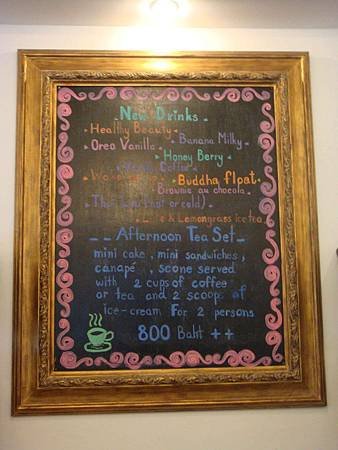 New Drinks
Healthy Beauty
Banana Milky
Oreo Vanilla
Honey Berry
Buddha float
Brownie au chocola
(hot or cold)
& Lemongrass ice tea
Afternoon Tea Set
mini cake, mini sandwiches,
canapé, scone served
with 2 cups of coffee
or tea and 2 scoops of
ice-cream For 2 persons
800 Baht ++